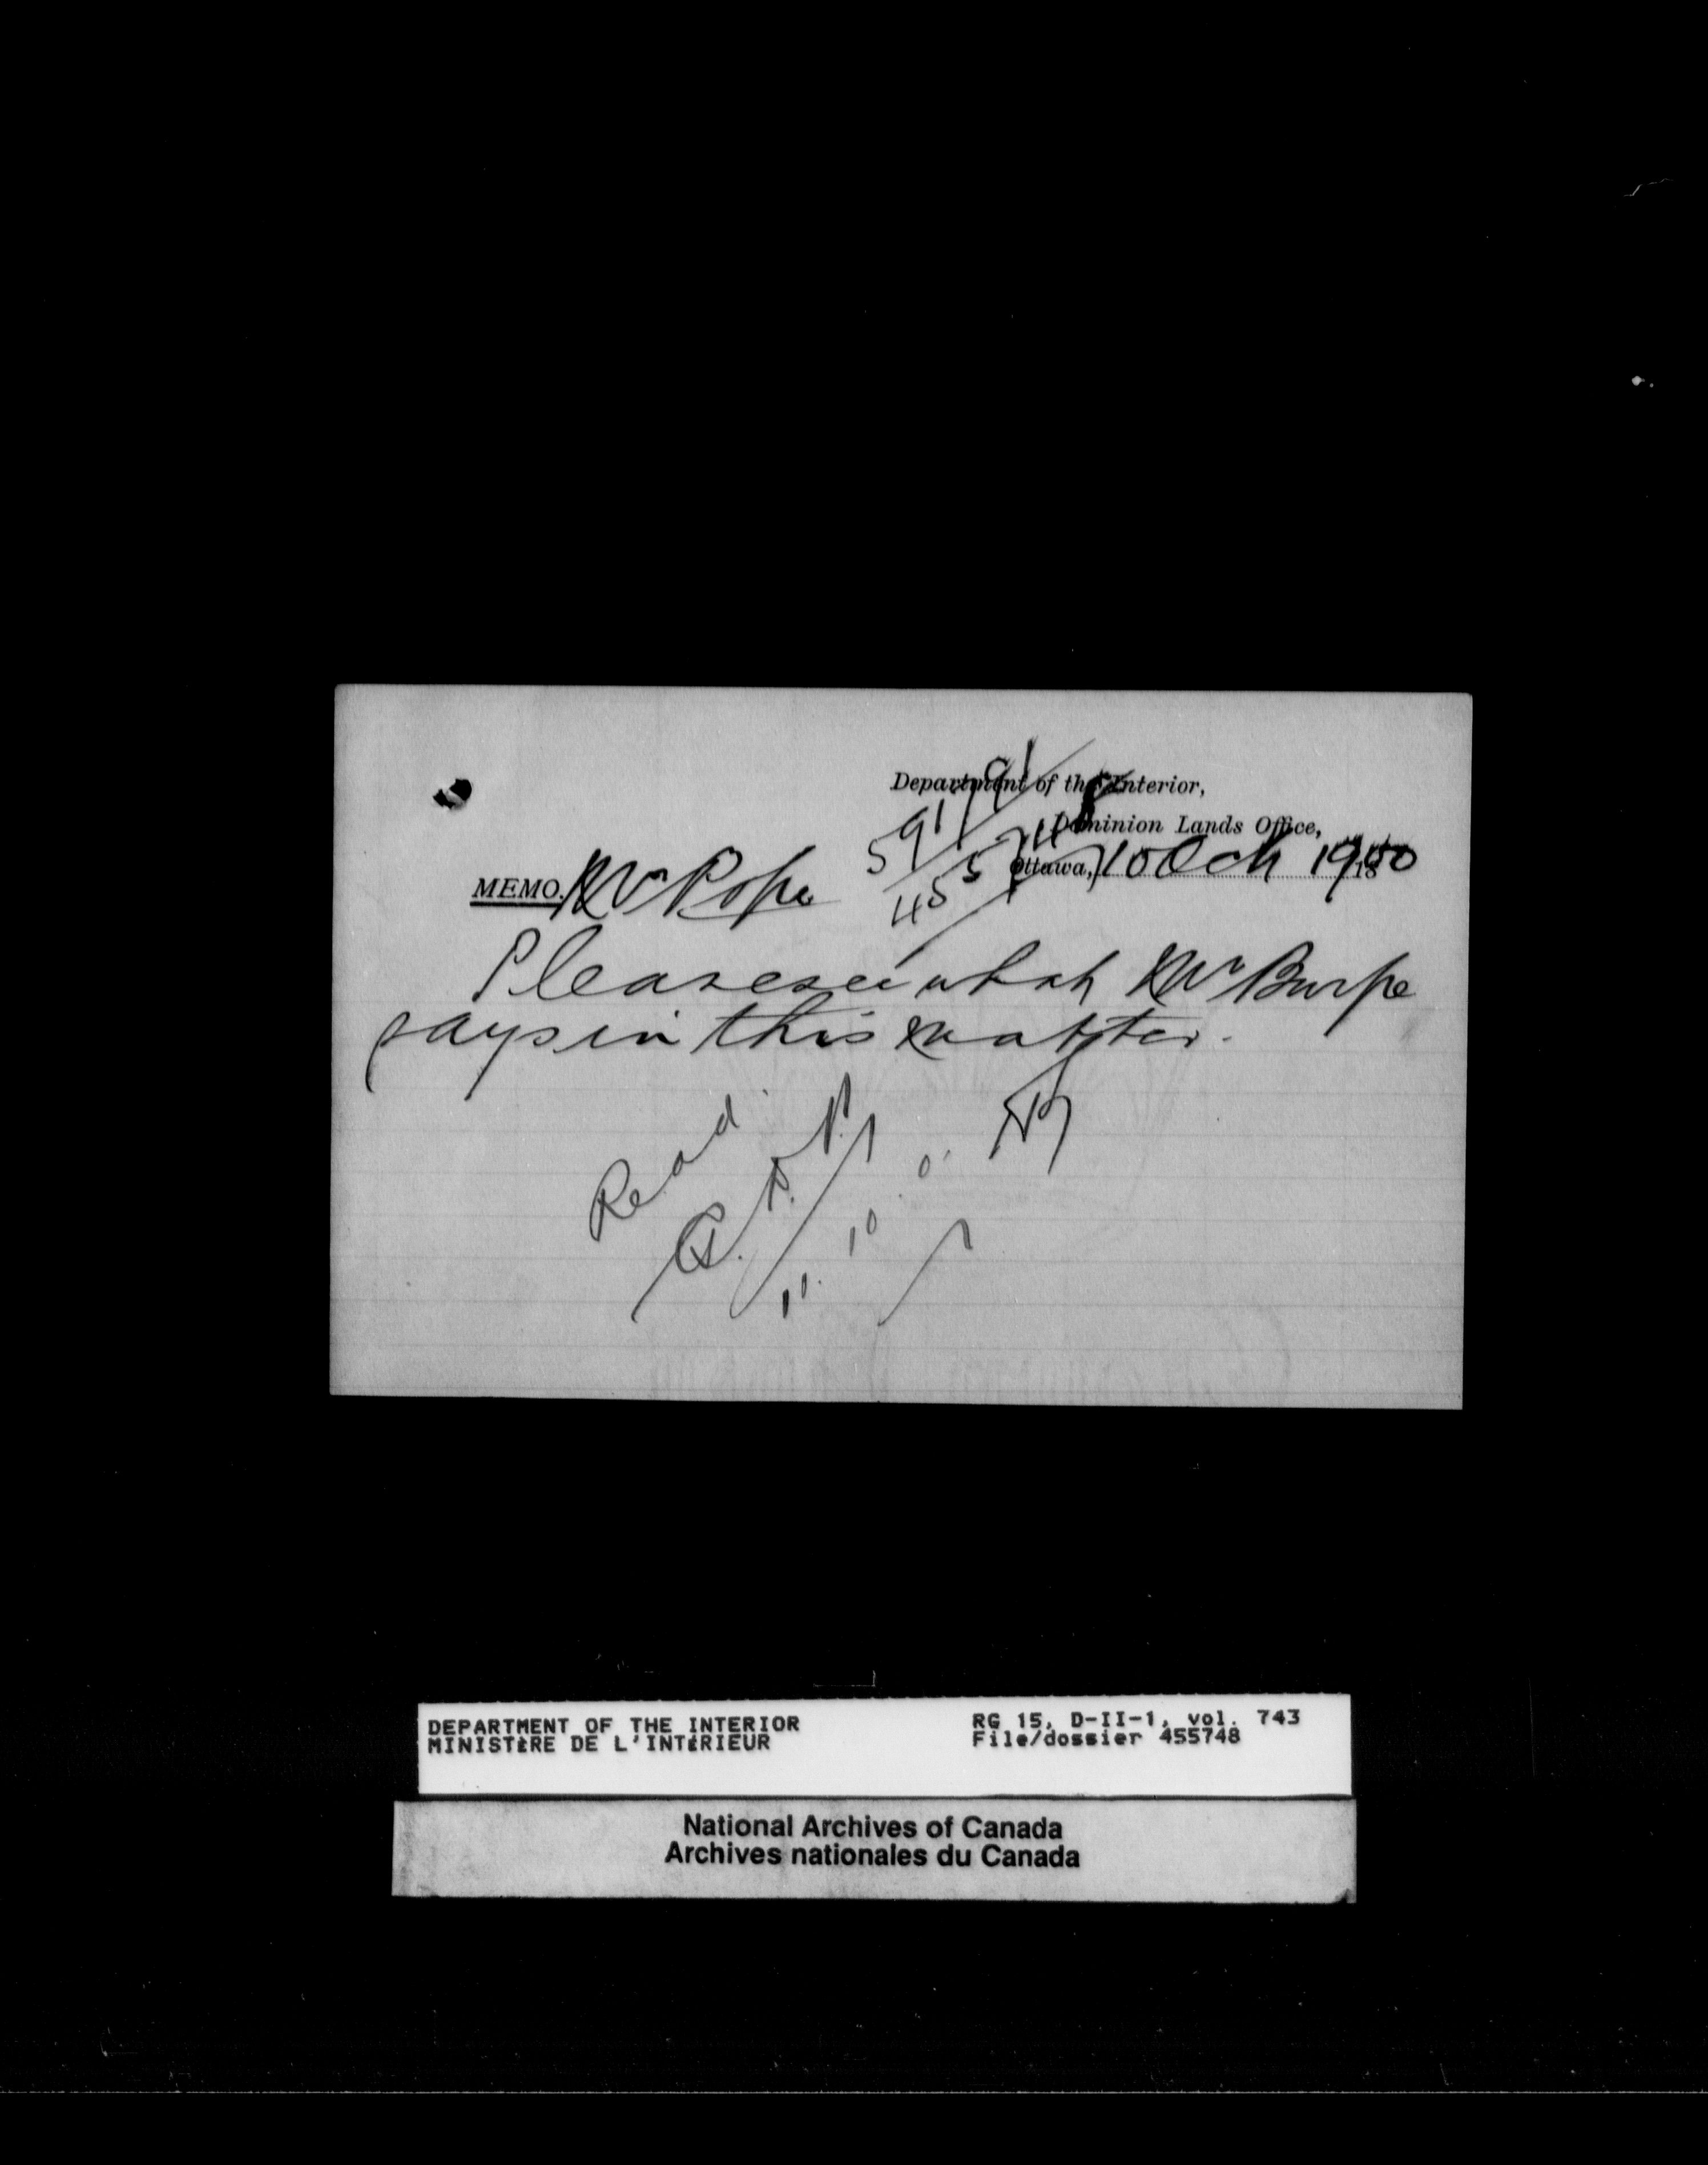 Department of the Interior,
Dominion Lands Office,
Ottawa, 10 Oct 1900
MEMO. Mr Pope
455748
Please see what Mr Burpe
says in this matter.
Read
11.10.0.
DEPARTMENT OF THE INTERIOR
MINISTÈRE DE L'INTÉRIEUR
RG 15, D-II-1, vol. 743
File/dossier 455748
National Archives of Canada
Archives nationales du Canada